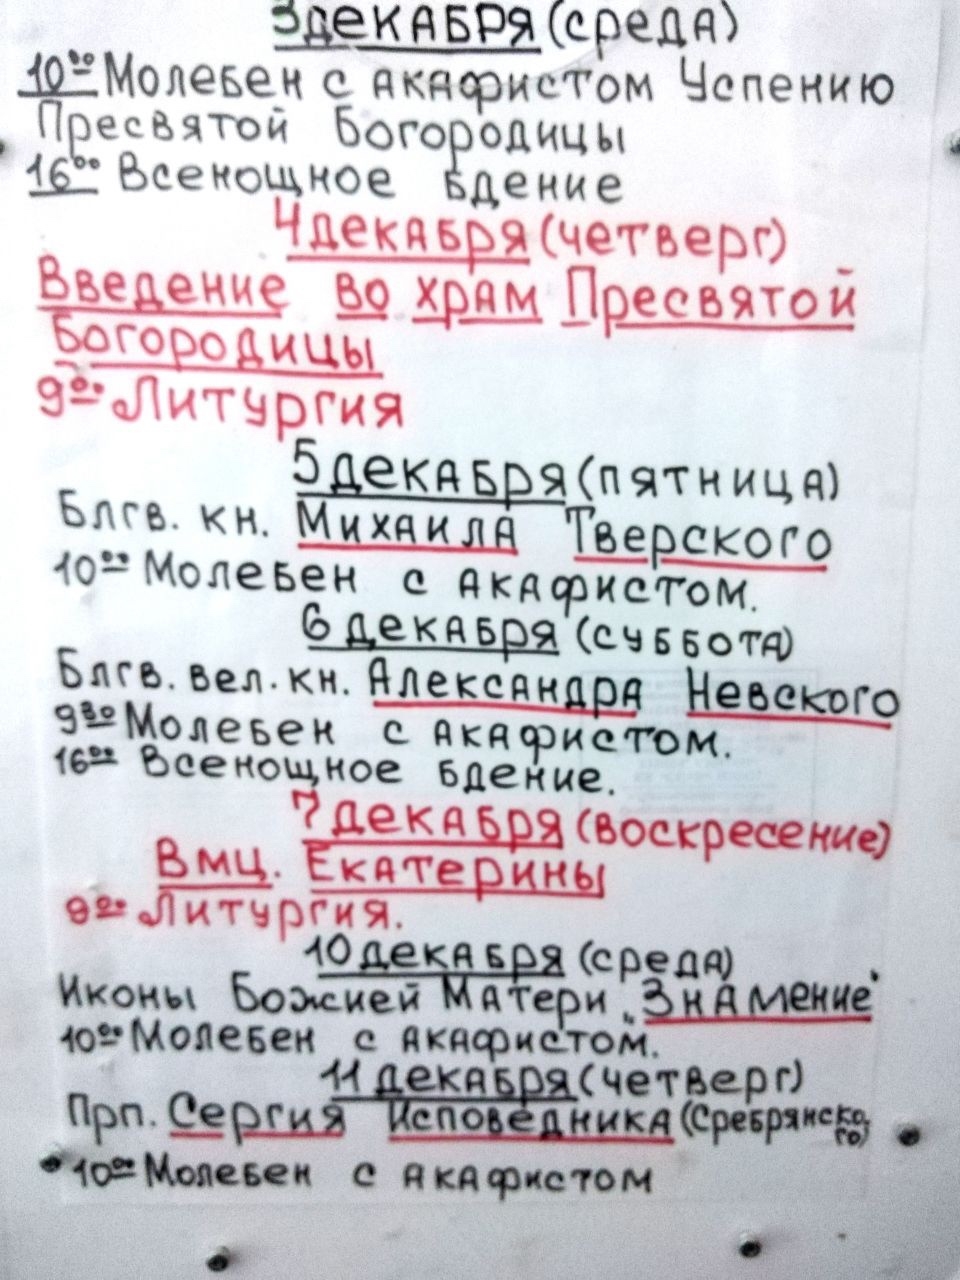 3 декабря (среда)
10⁰⁰ Молебен с акафистом Успению
Пресвятой Богородицы
16⁰⁰ Всенощное бдение
4 декабря (четверг)
Введение во храм Пресвятой
Богородицы
9⁰⁰ Литургия
5 декабря (пятница)
Блгв. кн. Михаила Тверского
10⁰⁰ Молебен с акафистом.
6 декабря (суббота)
Блгв. вел. кн. Александра Невского
9³⁰ Молебен с акафистом.
16⁰⁰ Всенощное бдение.
7 декабря (воскресение)
Вмц. Екатерины
9⁰⁰ Литургия.
10 декабря (среда)
Иконы Божией Матери „Знамение"
10⁰⁰ Молебен с акафистом.
11 декабря (четверг)
Прп. Сергия Исповедника (Сребрянско-
го)
10⁰⁰ Молебен с акафистом